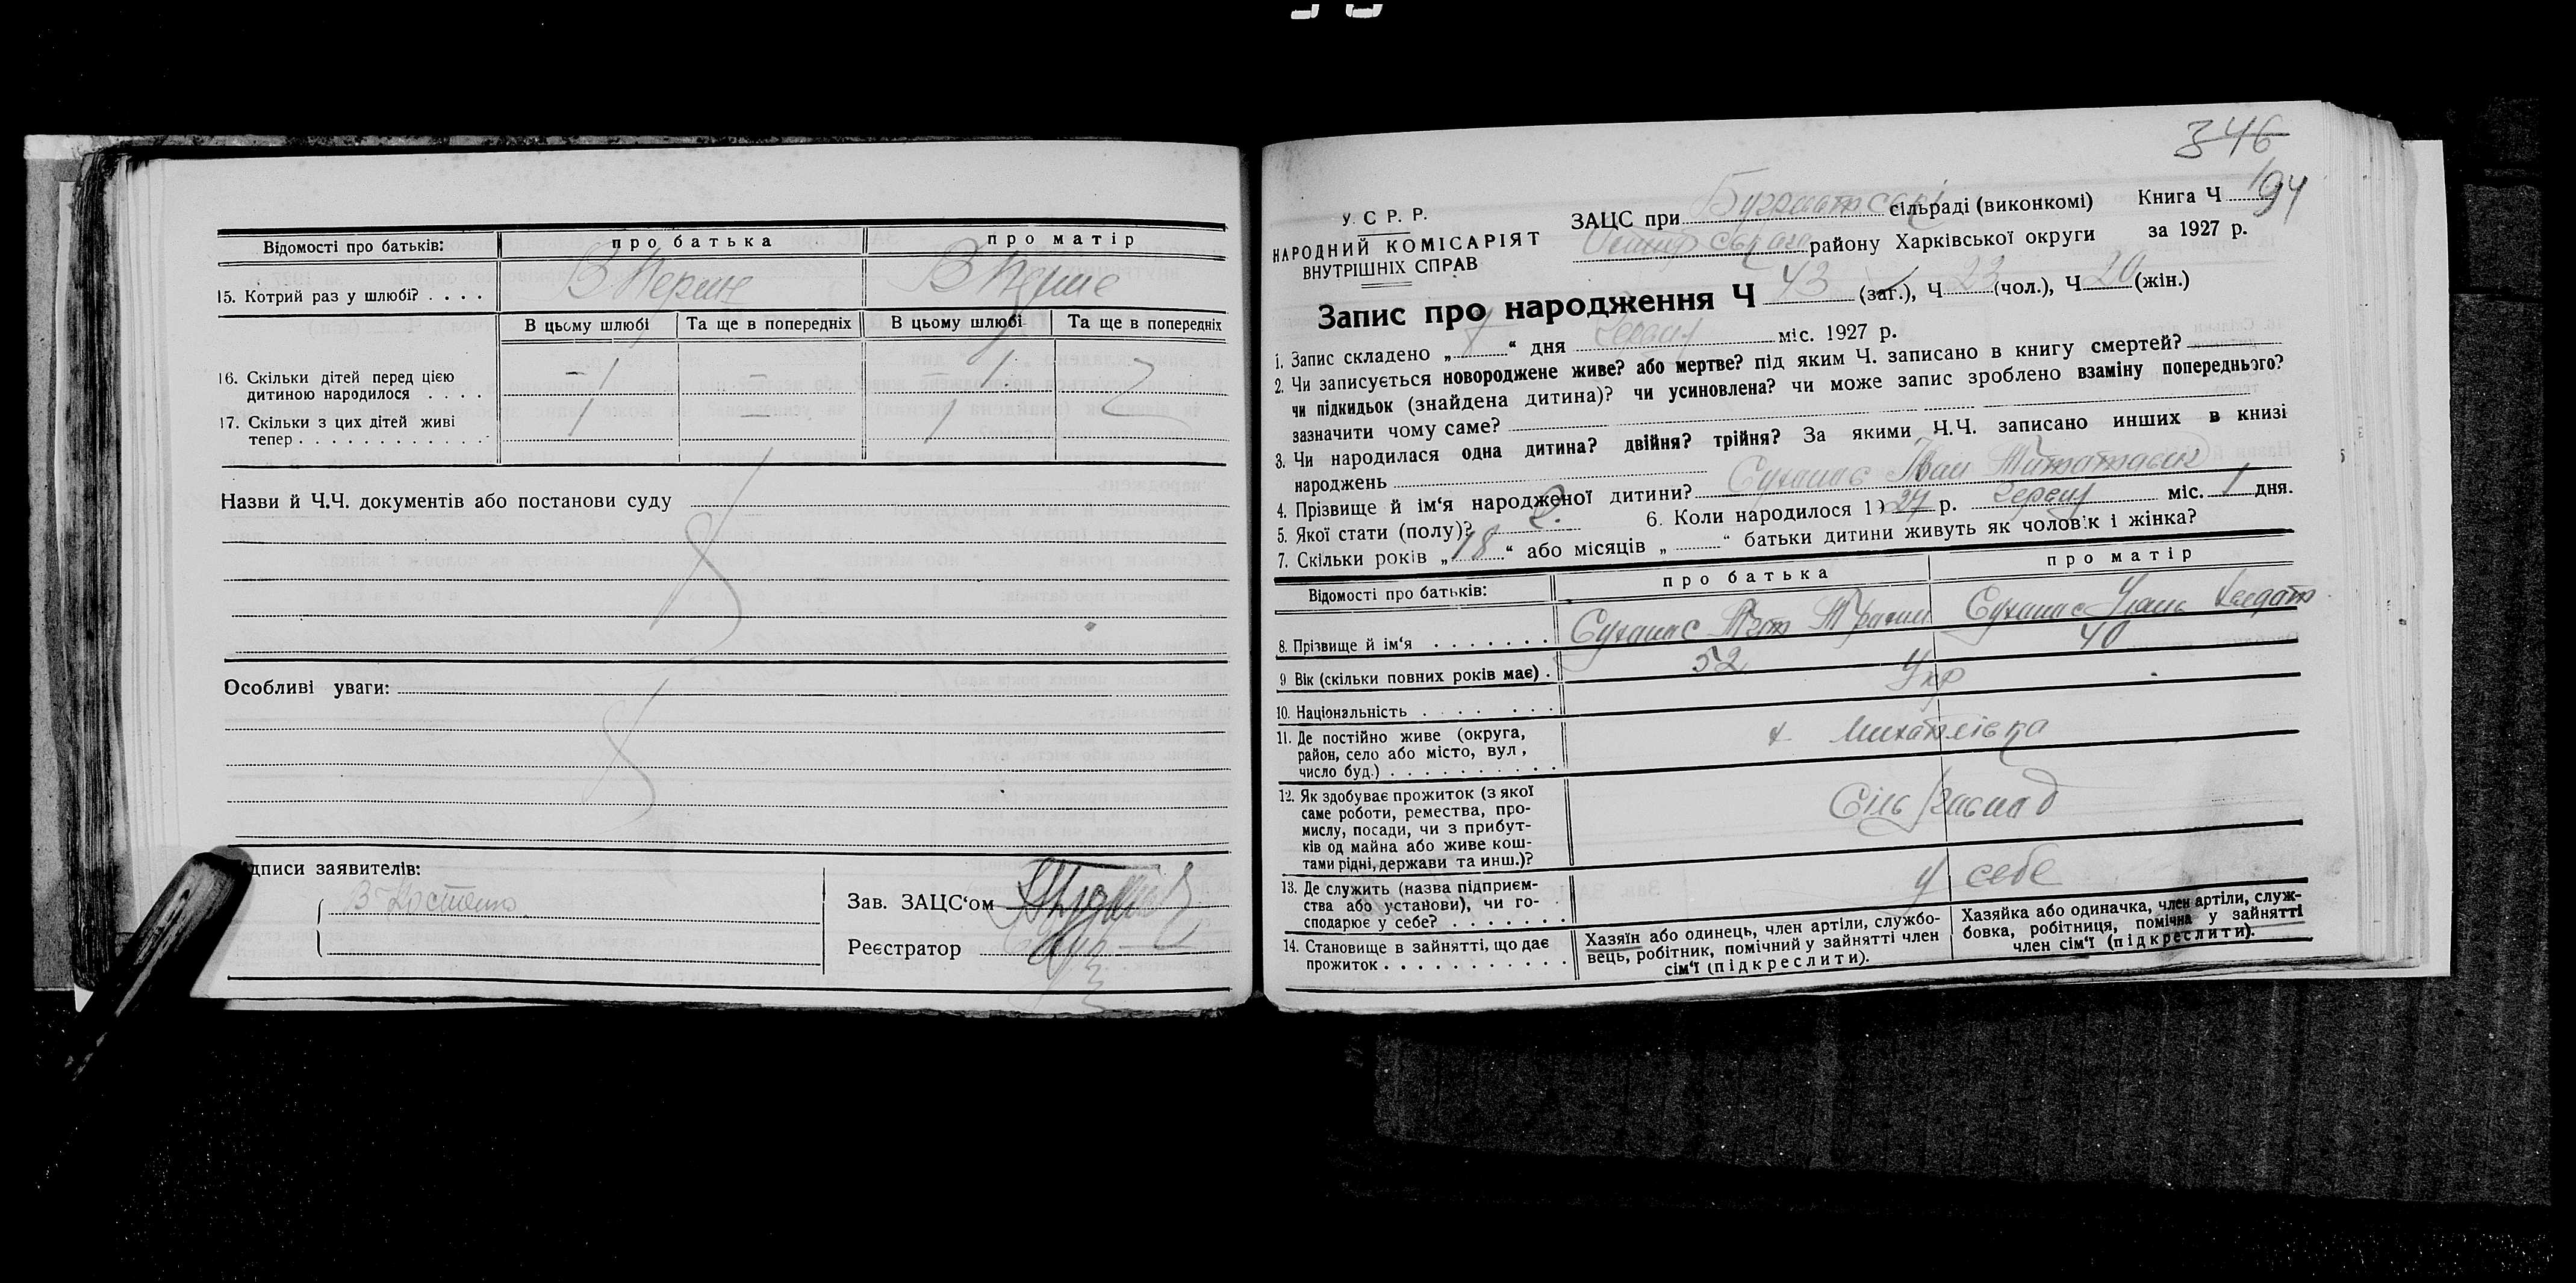 Відомості про батьків: про батька про матір
15. Котрий раз у шлюбі? . . . . В перше В перше
В цьому шлюбі Та ще в попередніх В цьому шлюбі Та ще в попередніх
16. Скільки дітей перед цією
дитиною народилося . . . . – 1 – – 1
17. Скільки з цих дітей живі
тепер . . . . . . . . . . . . 1 – 1
Назви й Ч.Ч. документів або постанови суду
Особливі уваги:
дписи заявителів:
В Костенко
Зав. ЗАЦС‘ом
Реєстратор
346
У. С Р. Р.
НАРОДНИЙ КОМІСАРІЯТ
ВНУТРІШНІХ СПРАВ
ЗАЦС при сільраді (виконкомі) Книга Ч 194
району Харківської округи за 1927 р.
Запис про народження Ч 43 (заг.), Ч 23 (чол.), Ч 20 (жін.)
1. Запис складено „ “ дня міс. 1927 р.
2. Чи записується новороджене живе? або мертве? під яким Ч. записано в книгу смертей?
чи підкидьок (знайдена дитина)? чи усиновлена? чи може запис зроблено взаміну попереднього?
зазначити чому саме?
3. Чи народилася одна дитина? двійня? трійня? За якими Ч.Ч. записано инших в книзі
народжень
4. Прізвище й ім‘я народженої дитини? Іван
5. Якої стати (полу)? 6. Коли народилося 1927 р. міс. 1 дня.
7. Скільки років „ 18 “ або місяців „ “ батьки дитини живуть як чоловік і жінка?
Відомості про батьків: про батька про матір
8. Прізвище й ім‘я . . . . . . .
9 Вік (скільки повних років має) . 52 40
10. Національність . . . . . . . Укр
11. Де постійно живе (округа,
район, село або місто, вул,
число буд.) . . . . . . . . . . х Михайлівка
12. Як здобуває прожиток (з якої
саме роботи, ремества, про-
мислу, посади, чи з прибут-
ків од майна або живе кош-
тами рідні, держави та инш.)?
13. Де служить (назва підприєм-
ства або установи), чи го-
сподарює у себе? . . . . . . у себе
14. Становище в зайнятті, що дає
прожиток . . . . . . . . . . .
Хазяїн або одинець, член артіли, службо-
вець, робітник, помічний у зайнятті член
сім‘ї (підкреслити).
Хазяйка або одиначка, член артіли, служ-
бовка, робітниця, помічна у зайнятті
член сім‘ї (підкреслити).